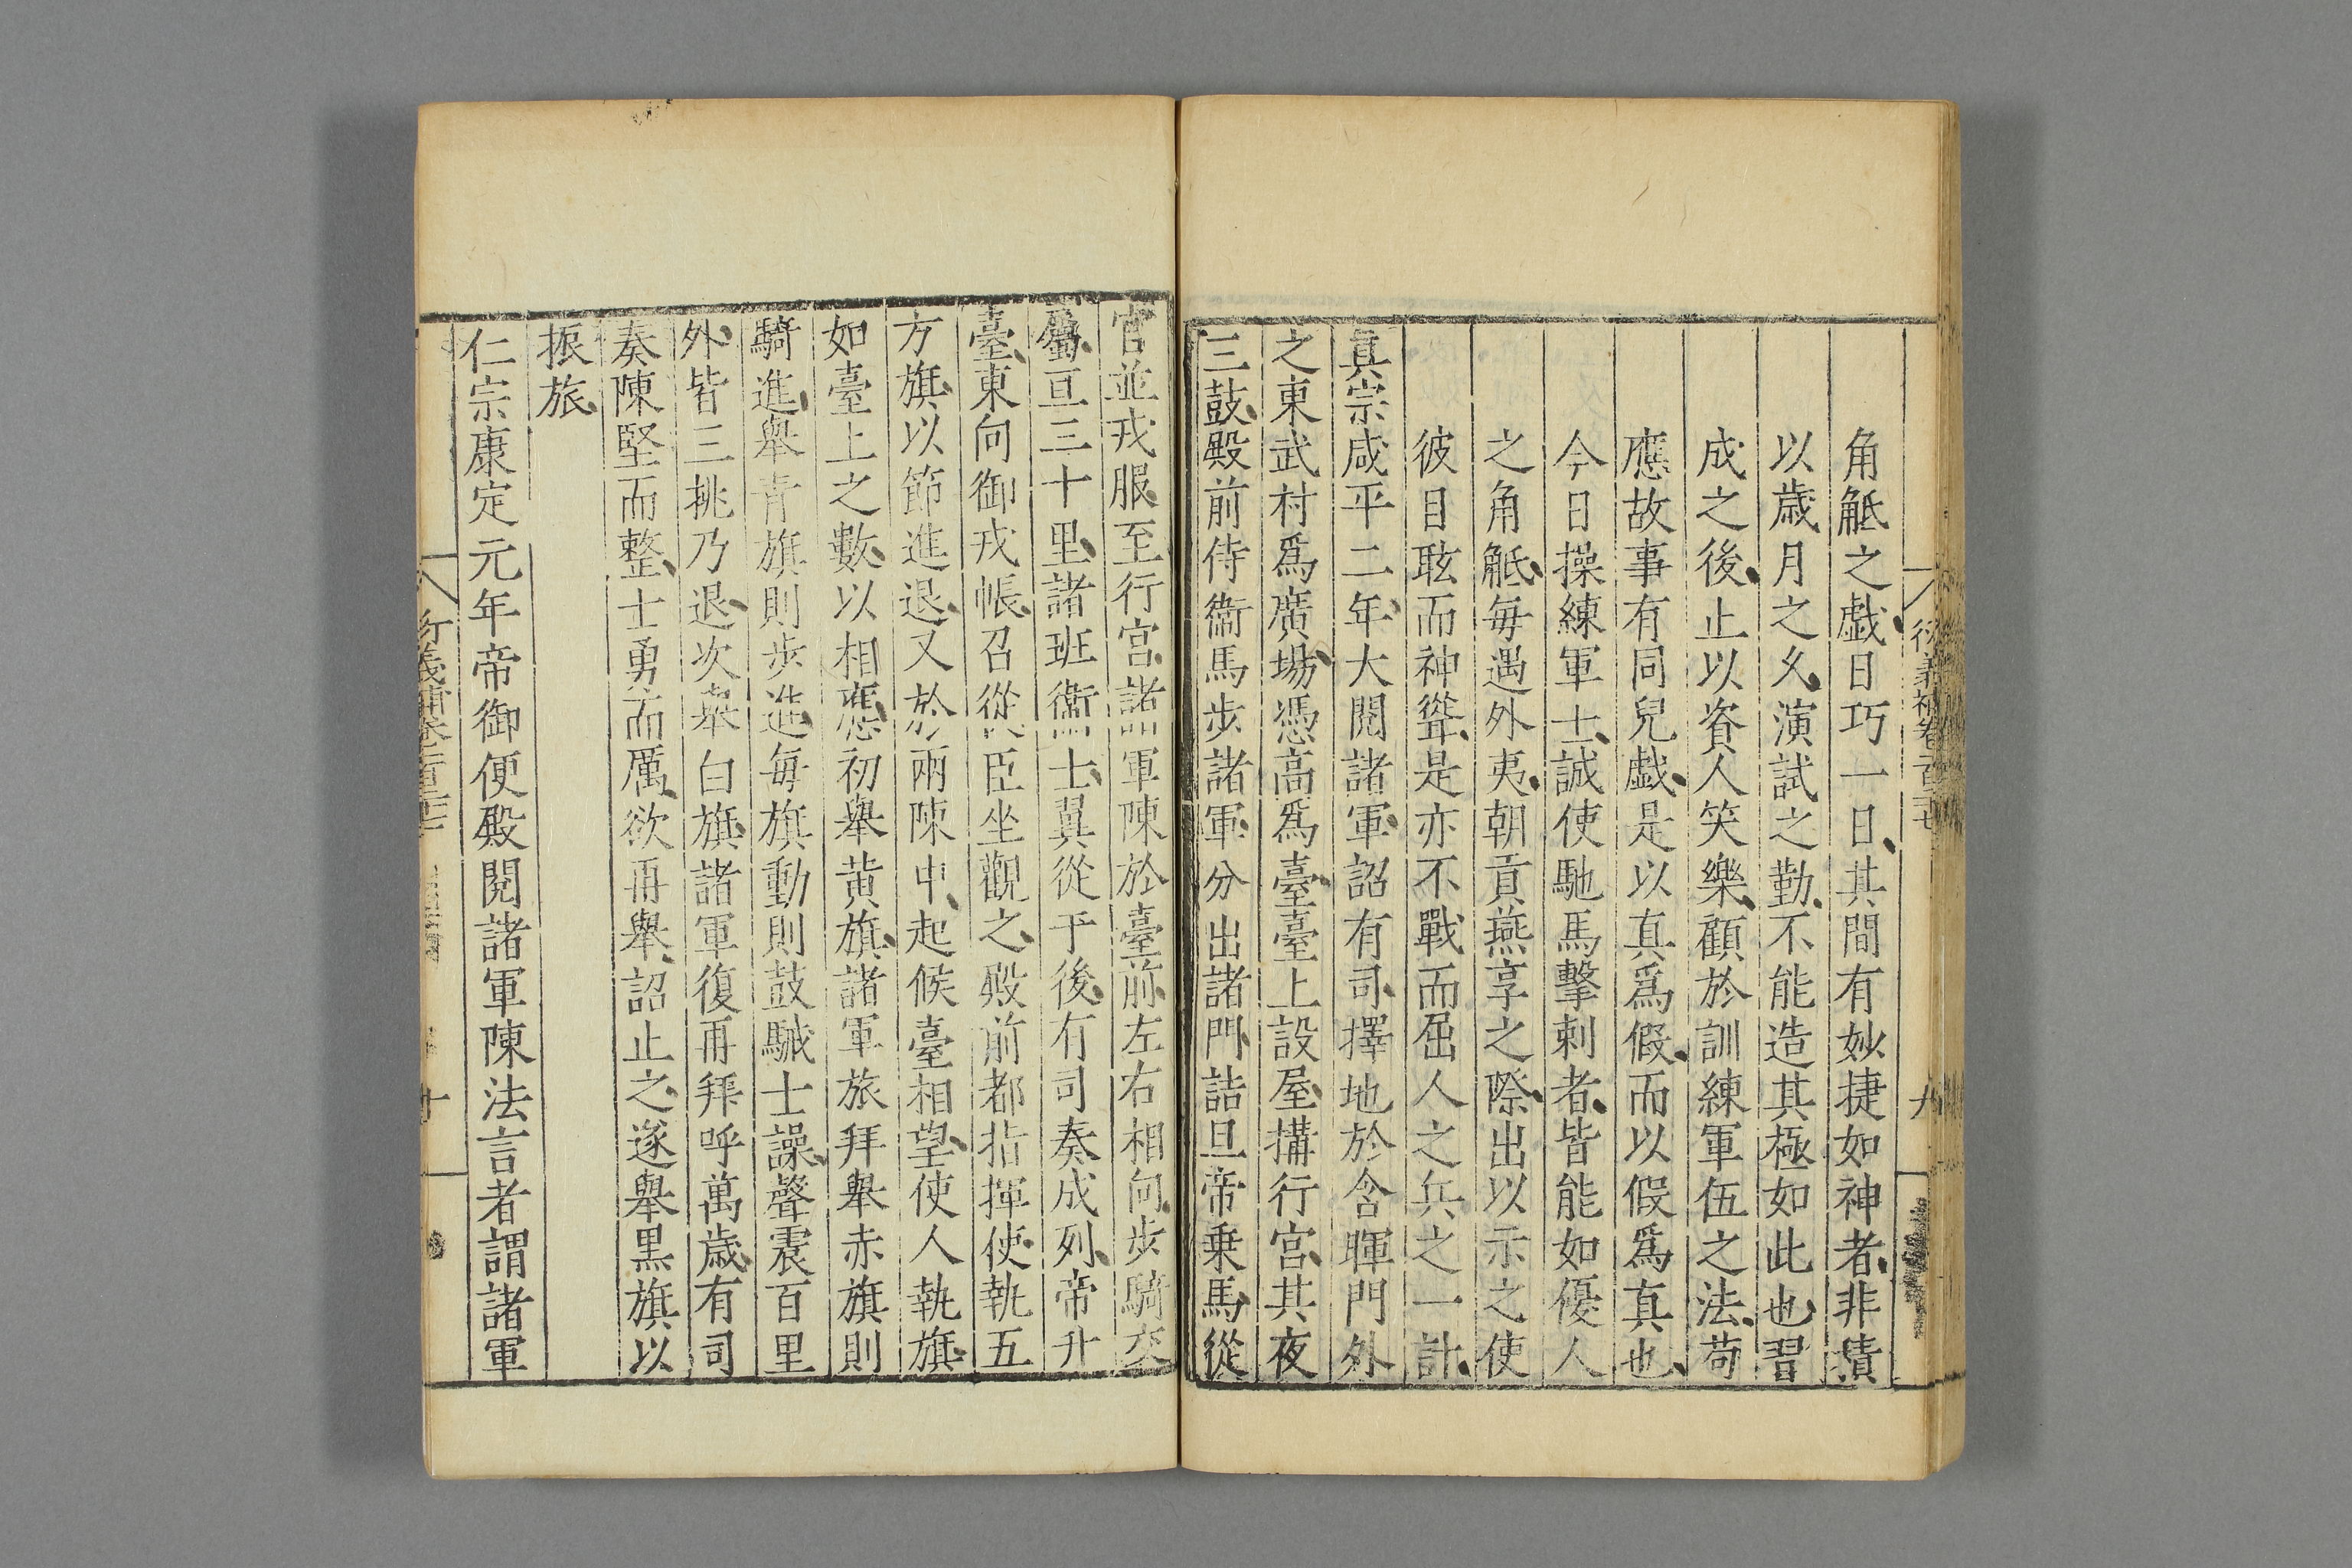 角觝之戱日巧一日其間有妙捷如神者非積
以歳月之久演試之勤不能造其極如此也習
成之後止以資人笑樂顧於訓練軍伍之法苟
應故事有同兒戱是以真爲假而以假爲真也
今日操練軍士誠使馳馬擊刺者皆能如優人
之角觝每遇外夷朝貢燕享之際出以示之使
彼目眩而神聳是亦不戰而屈人之兵之一計
真宗咸平二年大閱諸軍詔有司擇地於含暉門外
之東武村爲廣場憑高爲臺臺上設屋搆行宮其夜
三鼓殿前侍衞馬步諸軍分出諸門詰旦帝乗馬從
官並戎服至行宮諸軍陳於臺前左右相向步騎交
屬亘三十里諸班衞士翼從于後有司奏成列帝升
臺東向御戎帳召從臣坐觀之殿前都指揮使執五
方旗以節進退又於兩陳中起候臺相望使人執旗
如臺上之數以相應初舉黃旗諸軍旅拜舉赤旗則
騎進舉青旗則步進每旗動則鼓駴士譟聲震百里
外皆三挑乃退次舉白旗諸軍復再拜呼萬歳有司
奏陳堅而整士勇而厲欲再舉詔止之遂舉黑旗以
振旅
仁宗康定元年帝御便殿閱諸軍陳法言者謂諸軍